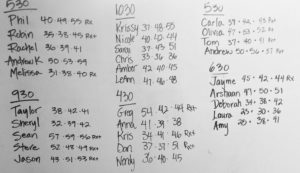 530
Phil 40 49 55 Rx
Robin 35 38 45 Rx+
Rachel 36 39 41
Andrew K 50 53 59
Melissa 31 38 40 Rx
930
Taylor 38 42 41
Sheryl 32 39 42
Sean 57 59 56 Rx+
Steve 52 48 49 Rx+
Jason 43 51 53 Rx+
1030
Krissy 37 48 55
Nicole 40 42 44
Sara 37 43 51
Chris 33 36 36
Amber 42 40 45
LeAnn 47 46 48
430
Greg 54 42 44 Rx+
Anna 41 39 38
Kris 34 41 46 Rx+
Dan 37 37 51 Rx+
Nandy 36 40 45
530
Carla 39 42 43 Rx+
Olivia 47 52 52
Tom 37 40 41 Rx+
Andrew 50 56 57 Rx+
630
Jayme 45 42 44 Rx
Arshaun 47 50 51
Deborah 34 38 42
Laura 23 30 36
Amy 28 38 41